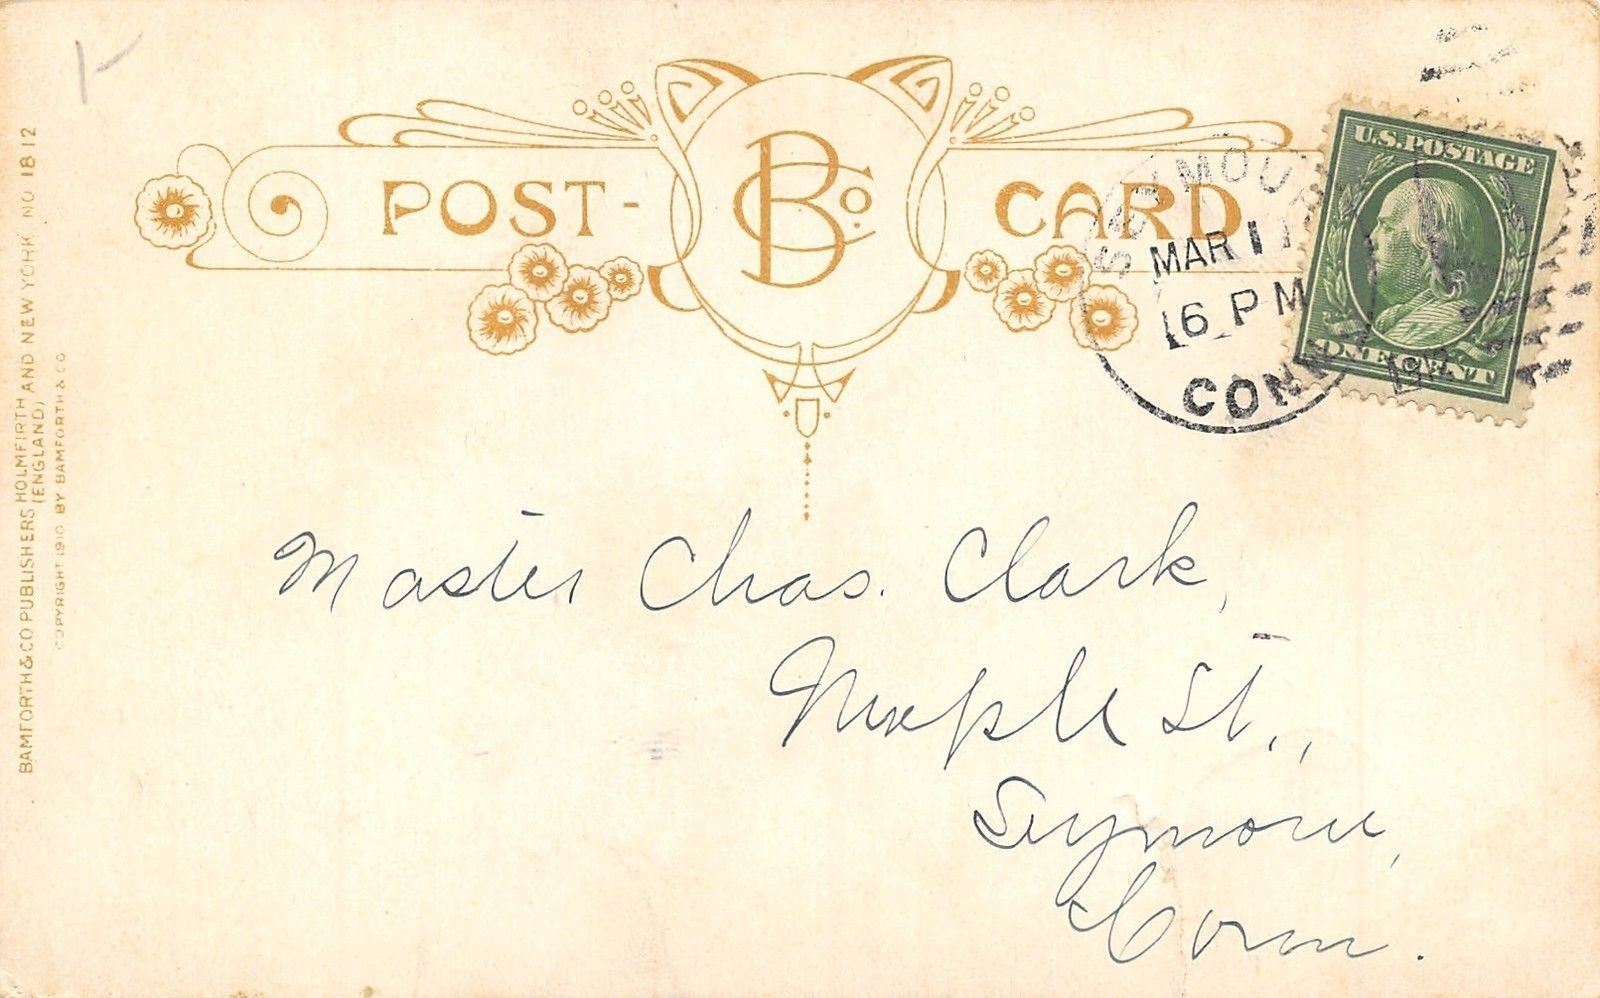 BAMFORTH & CO PUBLISHERS HOLMFIRTH AND NEW YORK NO 1812
(ENGLAND)
COPYRIGHT 1910 BY BAMFORTH & CO
POST-
BCo.
CARD
SEYMOUR
MAR 11
6 PM
CONN
U.S. POSTAGE
ONE CENT
Master Chas. Clark,
Maple St.,
Seymour,
Conn.